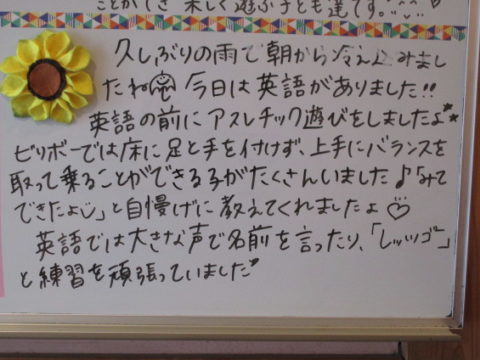 ことができ楽しく遊ぶ子ども達です。
久しぶりの雨で朝から冷えこみまし
たね 今日は英語がありました!!
英語の前にアスレチック遊びをしましたよ
ビリボーでは床に足と手を付けず、上手にバランスを
取って乗ることができる子がたくさんいました♪「みて
できたよ」と自慢げに教えてくれましたよ♡
英語では大きな声で名前を言ったり、「レッツゴー」
と練習を頑張っていました